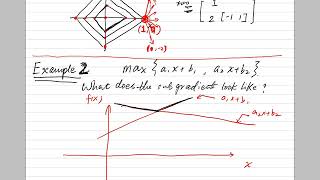 (1,0)
(0,-2)
1
2 [-1 1]
Example 2 max { a₁x + b₁ , a₂x + b₂ }
What does the subgradient look like ?
f(x)
a₁x + b₁
a₂x + b₂
x